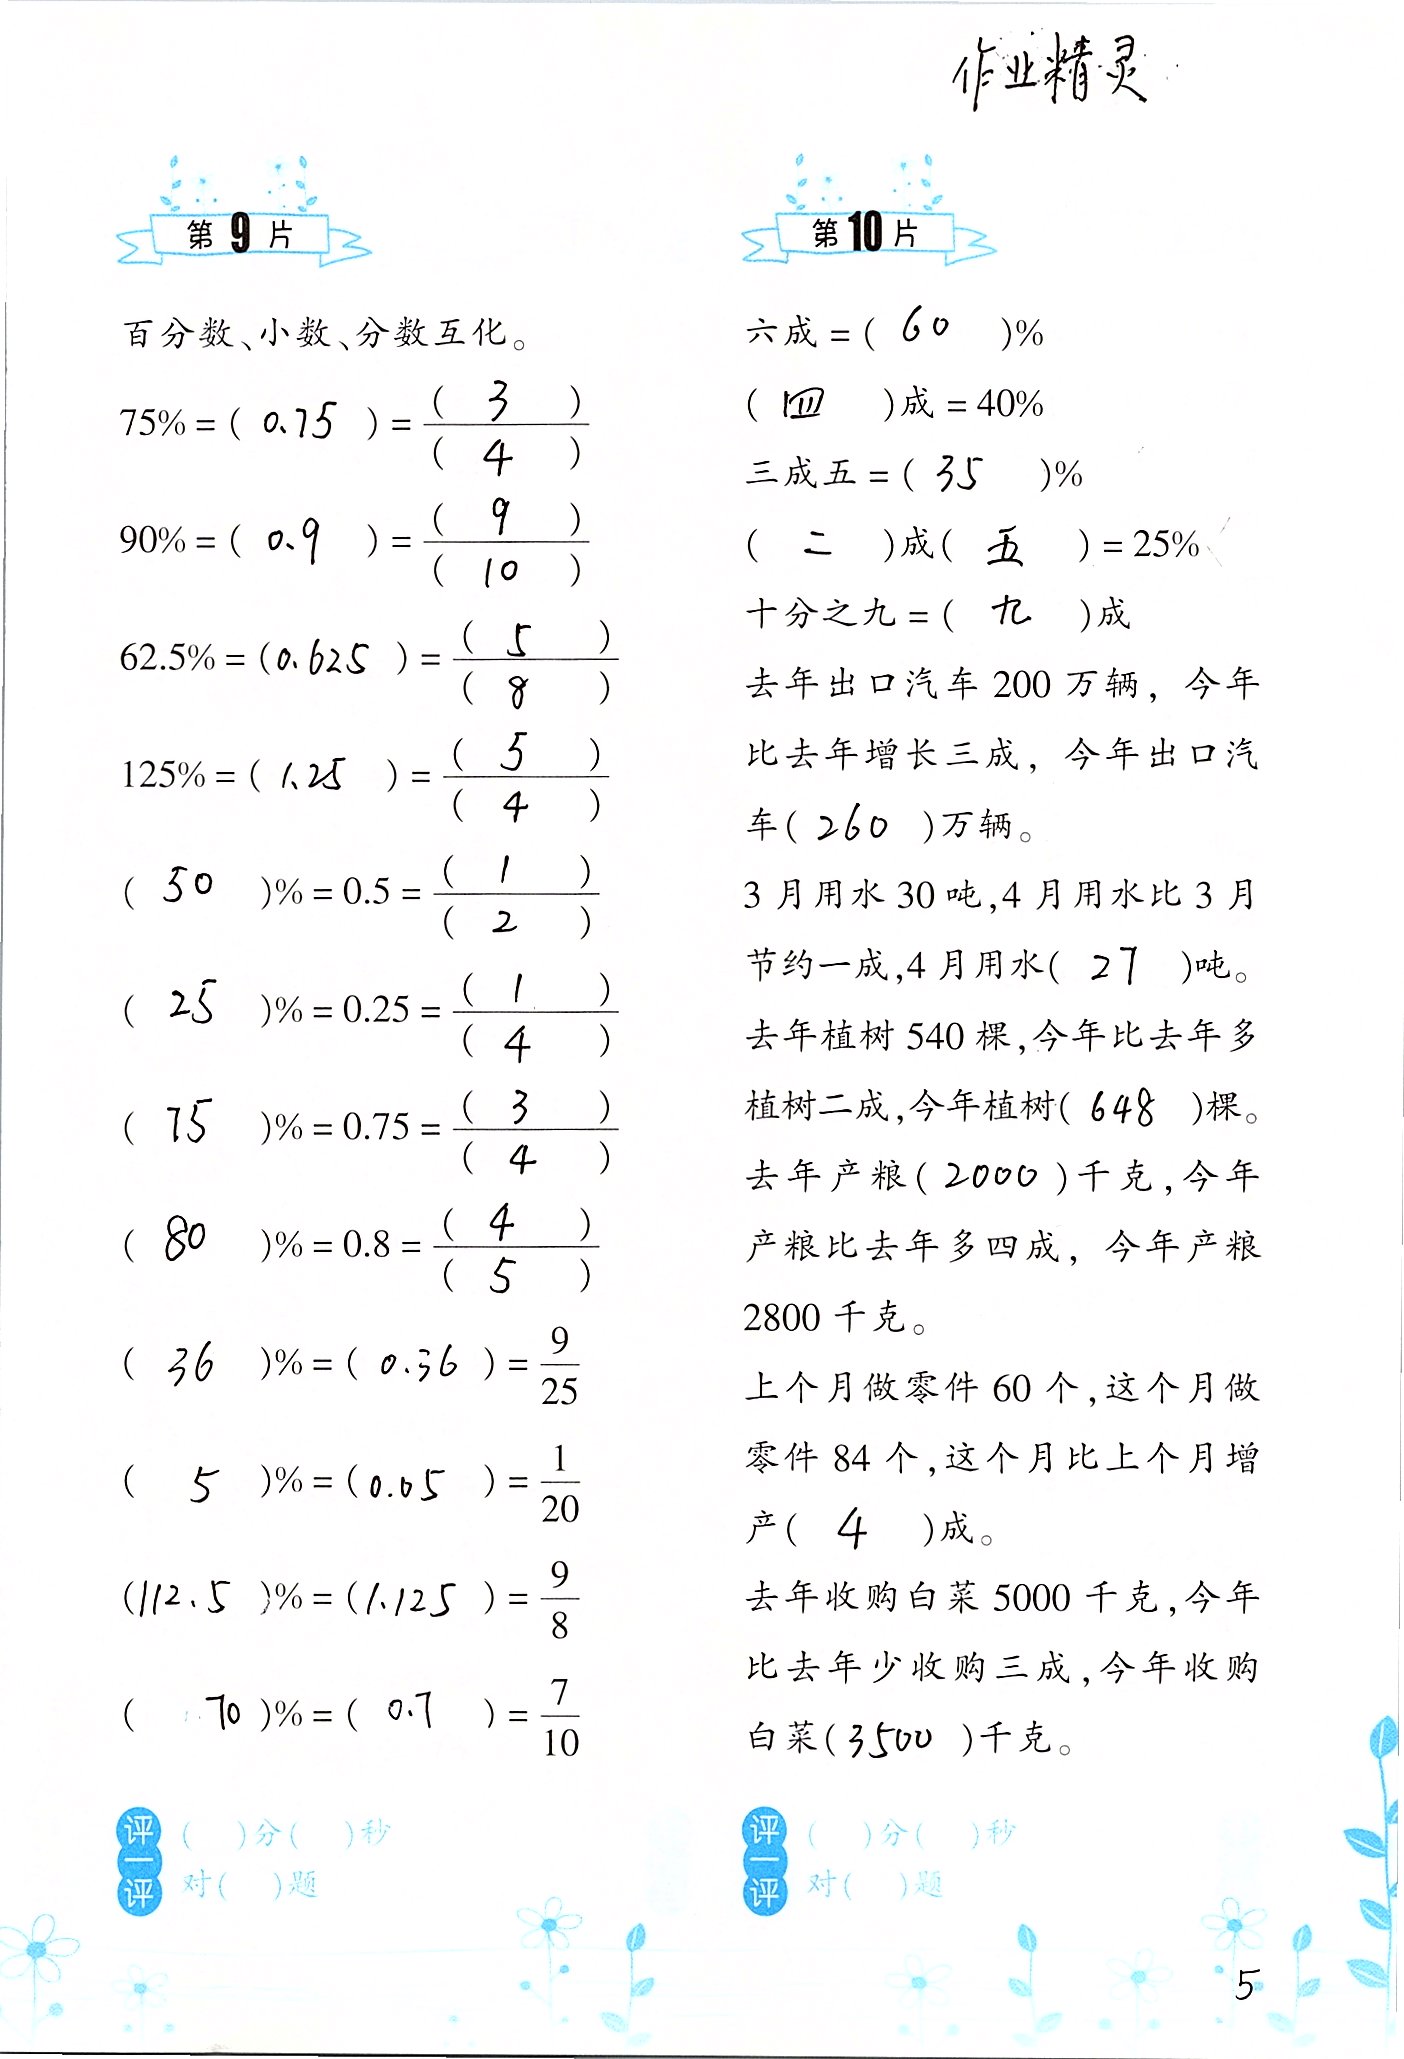 作业精灵
第9片
百分数、小数、分数互化。
75% = ( 0.75 ) = ( 3 )/( 4 )
90% = ( 0.9 ) = ( 9 )/( 10 )
62.5% = ( 0.625 ) = ( 5 )/( 8 )
125% = ( 1.25 ) = ( 5 )/( 4 )
( 50 )% = 0.5 = ( 1 )/( 2 )
( 25 )% = 0.25 = ( 1 )/( 4 )
( 75 )% = 0.75 = ( 3 )/( 4 )
( 80 )% = 0.8 = ( 4 )/( 5 )
( 36 )% = ( 0.36 ) = 9/25
( 5 )% = ( 0.05 ) = 1/20
( 112.5 )% = ( 1.125 ) = 9/8
( 70 )% = ( 0.7 ) = 7/10
评一评
( )分( )秒
对( )题
第10片
六成 = ( 60 )%
( 四 )成 = 40%
三成五 = ( 35 )%
( 二 )成( 五 ) = 25%
十分之九 = ( 九 )成
去年出口汽车 200 万辆，今年
比去年增长三成，今年出口汽
车( 260 )万辆。
3 月用水 30 吨,4 月用水比 3 月
节约一成,4 月用水( 27 )吨。
去年植树 540 棵,今年比去年多
植树二成,今年植树( 648 )棵。
去年产粮( 2000 )千克,今年
产粮比去年多四成，今年产粮
2800 千克。
上个月做零件 60 个,这个月做
零件 84 个,这个月比上个月增
产( 4 )成。
去年收购白菜 5000 千克,今年
比去年少收购三成,今年收购
白菜( 3500 )千克。
评一评
( )分( )秒
对( )题
5